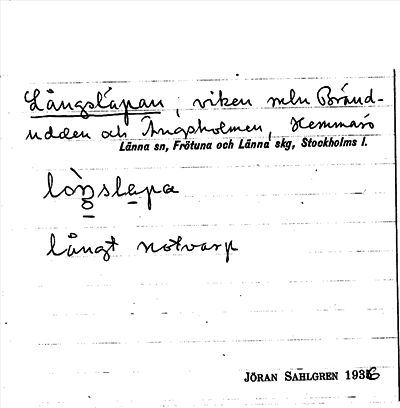 Långsläpan, viken mln Bränd-
udden och Ängsholmen, Hemmarö
Länna sn, Frötuna och Länna skg, Stockholms l.
lòŋslapa
långt notvarp
JÖRAN SAHLGREN 1936